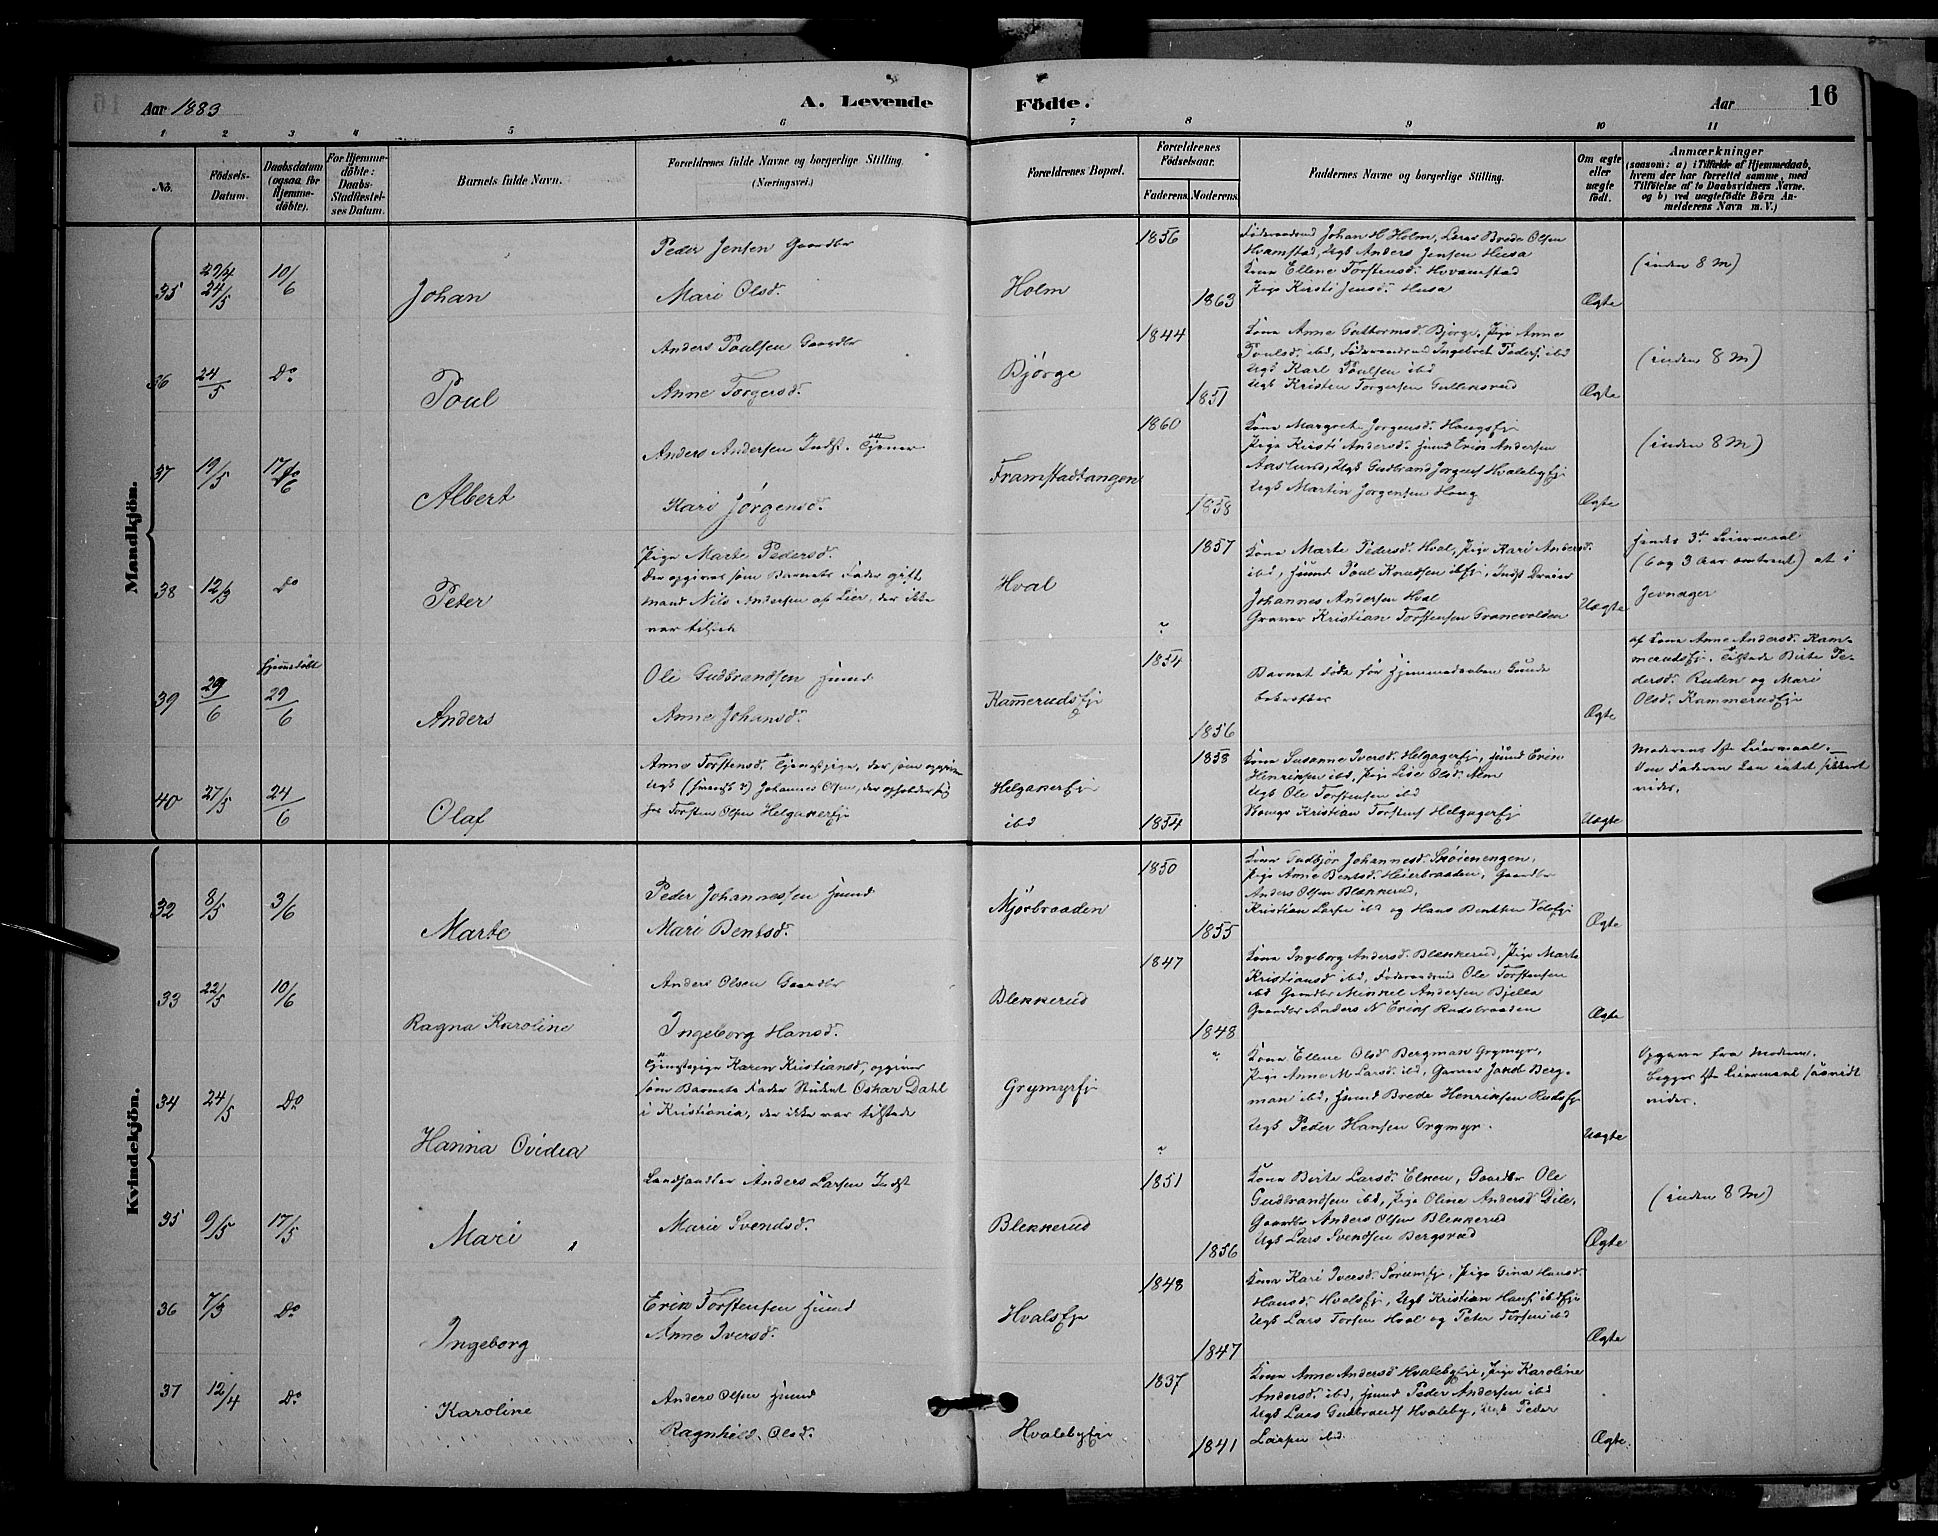 Aar 1883
A. Levende
Födte.
Aar
16
1 2 3 4 5 6 7 8 9 10 11
No.
Födsels-Datum.
Daabsdatum (ogsaa for Hjemme-döbte).
For Hjemme-döbte: Daabs-Stadfæstel-ses Datum.
Barnets fulde Navn.
Forældrenes fulde Navne og borgerlige Stilling.
(Næringsvei.)
Forældrenes Bopæl.
Forældrenes Födselsaar.
Faderens. Moderens.
Faddernes Navne og borgerlige Stilling.
Om ægte eller uægte födt.
Anmærkninger
(saasom: a) i Tilfælde af Hjemmedaab, hvem der har forrettet samme, med Tilföielse af to Daabsvidners Navne. og b) ved uægtefödte Börn Anmelderens Navn m. V.)
Mandkjön.
35 24/5 10/6 Johan
Peder Jensen Gaardbr
Mari Olsd.
Holm
1856
1863
Föderaadsmd Johan H Holm, Lars Brede Olsen
Hvamstad, Ugk Anders Jensen Husa
Kone Ellene Torstensd. Hvamstad
Pige Kirsti Jensd. Husa
Ægte
(inden 8 M)
36 24/5 Do Poul
Anders Poulsen Gaardbr
Anne Torgersd.
Bjørge
1844
1851
Kone Anne Guttormsd. Bjørge, Pige Anne
Poulsd. ibd, Föderaadsmd Ingebret Peders. ibd
Ugk Karl Poulsen ibd
Ugk Kristen Torgersen Gullensrud
Ægte
(inden 8 M)
37 19/5 17/6 Albert
Anders Andersen Indst. Tjener
Kari Jørgensd.
Framstadtangen
1860
1858
Kone Margrete Jørgensd. Haugsej
Pige Kirsti Andersd. Husmd Erik Andersen
Aaslund, Ugk Gudbrand Jørgens Hvalebyej
Ugk Martin Jørgensen Haug
Ægte
(inden 8 M)
38 12/3 Do Peter
Pige Marte Pedersd.
Der opgives som Barnets Fader gift
mand Nils Andersen af Lier, der ikke
var tilsted
Hval
1857
"
Kone Marte Pedersd. Hval, Pige Kari Andersd.
ibd, Husmd Poul Knudsen ibd, Indst Dreier
Johannes Andersen Hval
Graver Kristian Torstensen Granevolden
Uægte
Hendes 3die Leiermaal
(6 og 3 Aar omtrent) at i
Jevnager
39 29/6 Hjemmedöbt 29/6 Anders
Ole Gudbrandsen Husmd
Anne Johansd.
Kamerudsej
1854
1856
Barnet döde för Hjemmedaaben kunde
bekræftes
Ægte
af Kone Anne Andersd. Kam-
merudsej. Tilstede Birte Pe-
dersd. Ruden og Mari
Olsd. Kammerudsej
40 27/5 24/6 Olaf
Anne Torstensd. Tjenestepige, der som opgiver
Ugk Johannes Olsen, der opholder sig
hos Torsten Olsen Helgakerej
Helgakerej
ibd
1858
1854
Kone Susanne Iversd. Helgagerej, Husmd Erik
Henriksen ibd, Pige Lise Olsd. Alm
Ugk Ole Torstensen ibd
Kristian Torstens Helgagerej
Uægte
Moderens 1ste Leiermaal.
Om Faderen kan intet sikkert
vides.
Kvindekjön.
32 8/5 3/6 Marte
Peder Johannessen Husmd
Mari Bentsd.
Mjørbraaden
1850
1855
Kone Gudbjør Johannesd. Skøienengen,
Pige Anne Bentsd. Heierbraaden, Gaardbr
Anders Olsen Blekkerud,
Kristian Larsen ibd og Hans Bentsen Velosej
Ægte
33 22/5 10/6 Ragna Karoline
Anders Olsen Gaardbr
Ingeborg Hansd.
Blekkerud
1847
1848
Kone Ingeborg Andersd. Blekkerud, Pige Marte
Kristiansd ibd, Föderaadsmd Ole Torstensen
ibd Gaardbr Mikkel Andersen Bjella
Gaardbr Anders N Eriks Rudsbraaden
Ægte
34 24/5 Do Hanna Ovidea
Tjenestepige Karen Kristiansd, opgiver
som Barnets Fader Student Oskar Dahl
i Kristiania, der ikke var tilstede
Grymyrej
"
"
Kone Ellene Olsd Bergman Grymyr,
Pige Anne M. Larsd ibd, Garver Jakob Berg-
man ibd, Husmd Brede Henriksen Rudsej
Ugk Peder Hansen Grymyr.
Uægte
Opgave fra Moderen.
Begges 1ste Leiermaal saavidt
vides.
35 9/5 17/5 Mari
Landhandler Anders Larsen Indst
Marie Svendsd.
Blekkerud
1851
1856
Kone Birte Larsd. Elken, Gaardbr Ole
Gudbrandsen ibd, Pige Oline Andersd Dile,
Gaardbr Anders Olsen Blekkerud
Ugk Lars Svendsen Bergsrud
Ægte
(inden 8 M)
36 7/3 Do Ingeborg
Erik Torstensen Husmd
Anne Iversd.
Hvalsej
1848
1847
Kone Kari Iversd. Sørumej, Pige Gina Hansd.
Hansd. Hvalsej, Ugk Kristian Hans. ibdej
Ugk Lars Torsen Hval og Peter Torsen ibd
Ægte
37 12/4 Do Karoline
Anders Olsen Husmd
Ragnhild Olsd.
Hvalebyej
1837
1841
Kone Anne Andersd Hvalebyej, Pige Karoline
Andersd. ibd, Husmd Peder Andersen ibd
Ugk Lars Gudbrands Hvaleby, Ugk Peder
Larsen ibd.
Ægte.